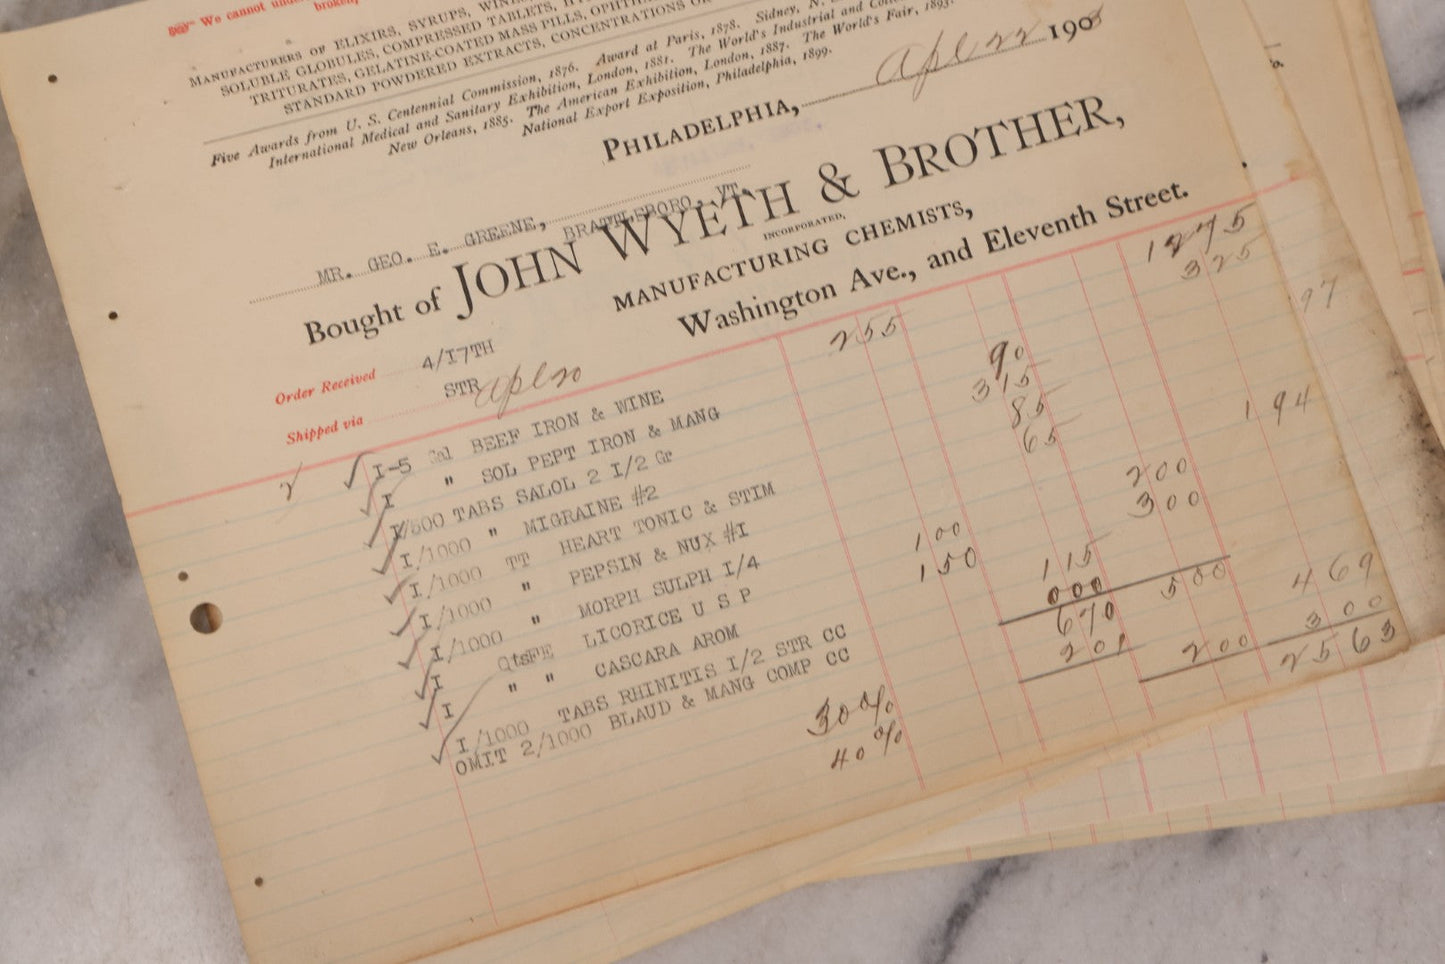 We cannot
MANUFACTURERS OF ELIXIRS, SYRUPS,
SOLUBLE GLOBULES, COMPRESSED TABLETS,
TRITURATES, GELATINE-COATED MASS PILLS,
STANDARD POWDERED EXTRACTS, CONCENTRATIONS
Five Awards from U. S. Centennial Commission, 1876. Award at Paris, 1878. Sidney, N.
International Medical and Sanitary Exhibition, London, 1881. The World's Industrial and
New Orleans, 1885. The American Exhibition, London, 1887. The World's Fair, 1893.
National Export Exposition, Philadelphia, 1899.
PHILADELPHIA, Apl 22 190
MR. GEO. E. GREENE, BRATTLEBORO, VT.
Bought of JOHN WYETH & BROTHER,
INCORPORATED,
MANUFACTURING CHEMISTS,
Washington Ave., and Eleventh Street.
Order Received 4/I7TH
Shipped via STR Apl 20
I-5 Gal BEEF IRON & WINE 255 1275
I " SOL PEPT IRON & MANG 325
I/500 TABS SALOL 2 I/2 Gr 90
I/1000 " MIGRAINE #2 315
I/1000 TT HEART TONIC & STIM 85 97
I/1000 " PEPSIN & NUX #I 65
I/1000 " MORPH SULPH I/4 194
I QtsFE LICORICE U S P 100 200
I " " CASCARA AROM 150 300
I/1000 TABS RHINITIS I/2 STR CC 115
OMIT 2/1000 BLAUD & MANG COMP CC 000
670 500 469
30% 201 300
40% 200 2563